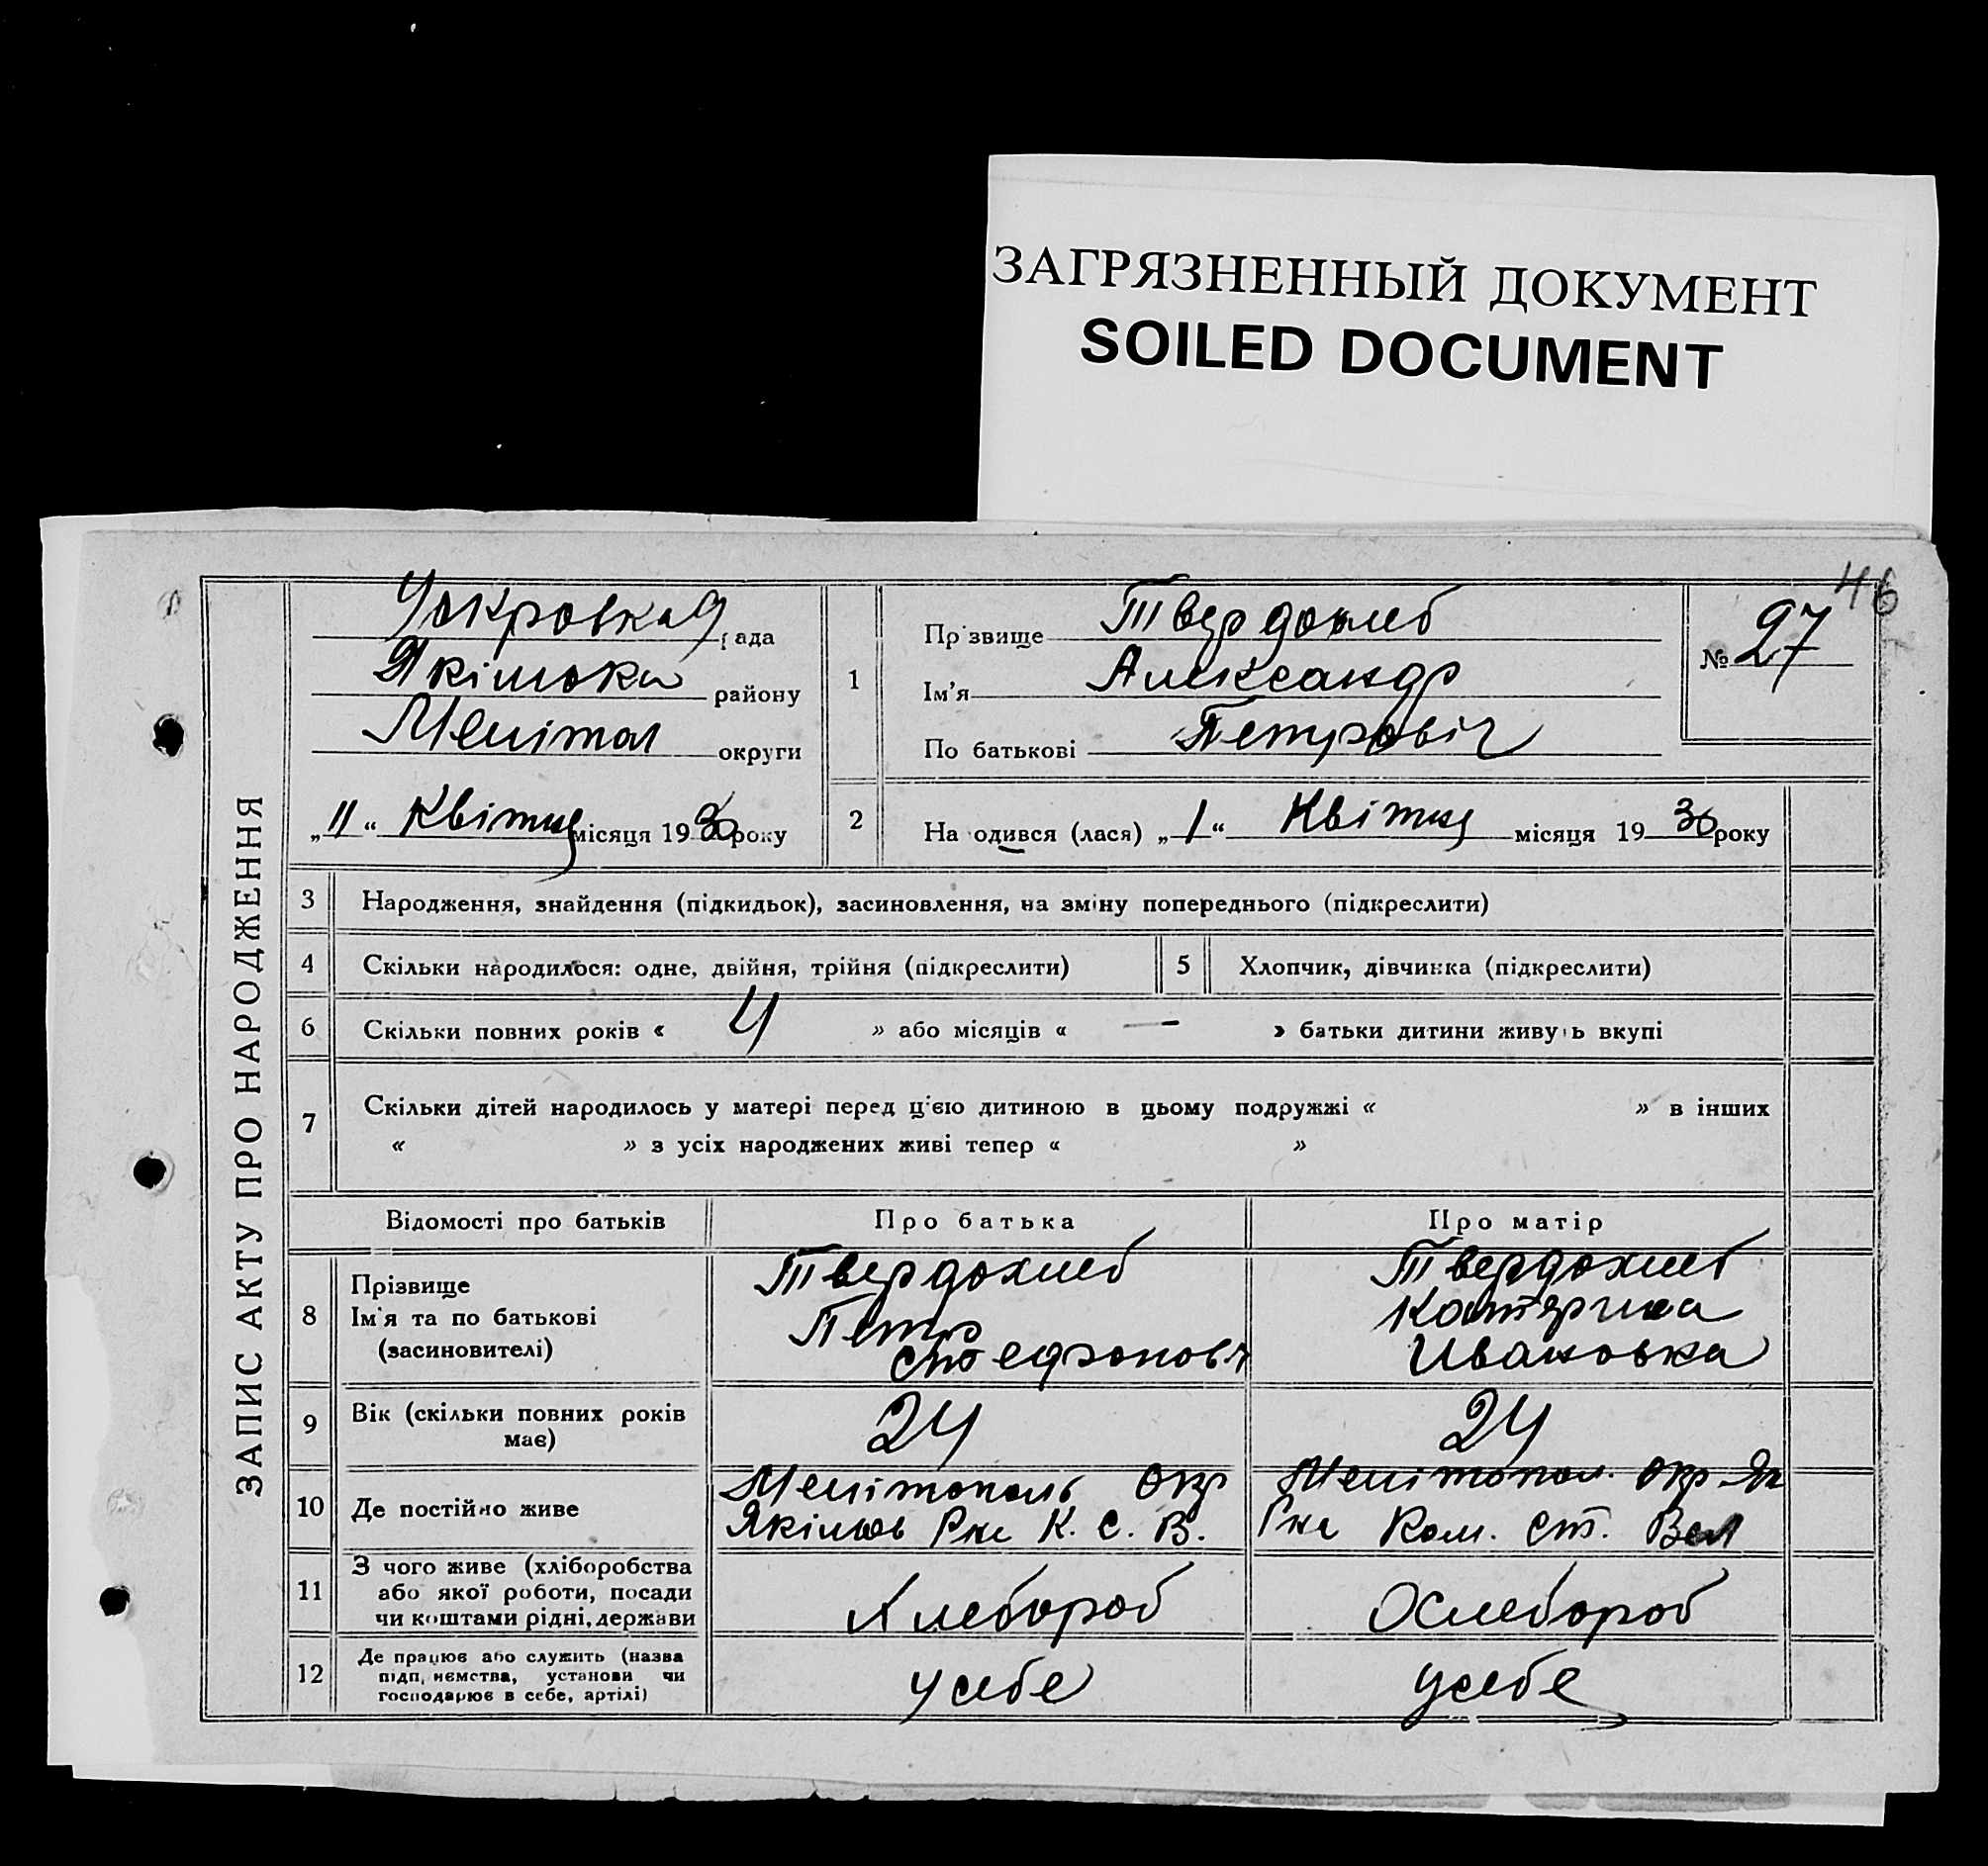 ЗАГРЯЗНЕННЫЙ ДОКУМЕНТ
SOILED DOCUMENT
46
ЗАПИС АКТУ ПРО НАРОДЖЕННЯ
рада
району
Мелітоп округи
„11“ Квітня місяця 1930 року
1
Прізвище Твердохлеб
Ім'я Александр
По батькові Петровіч
№ 27
2 Народився (лася) „1“ Квітня місяця 1930 року
3 Народження, знайдення (підкидьок), засиновлення, на зміну попереднього (підкреслити)
4 Скільки народилося: одне, двійня, трійня (підкреслити)
5 Хлопчик, дівчинка (підкреслити)
6 Скільки повних років « 4 » або місяців « — » батьки дитини живуть вкупі
7 Скільки дітей народилось у матері перед ц'єю дитиною в цьому подружжі « » в інших
« » з усіх народжених живі тепер « »
Відомості про батьків Про батька Про матір
8 Прізвище
Ім'я та по батькові
(засиновителі)
Твердохлеб
Петро
Твердохлеб
Катерина
Ивановка
9 Вік (скільки повних років
має)
24
24
10 Де постійно живе
Мелітополь Окр
Рна К. С. В.
Мелітопол. Окр Як
Рна Ком. Ст. Вел
11 З чого живе (хліборобства
або якої роботи, посади
чи коштами рідні, держави
Хлебороб
Хлебороб
12 Де працює або служить (назва
підприємства, установи чи
господарює в себе, артілі)
у себе
у себе